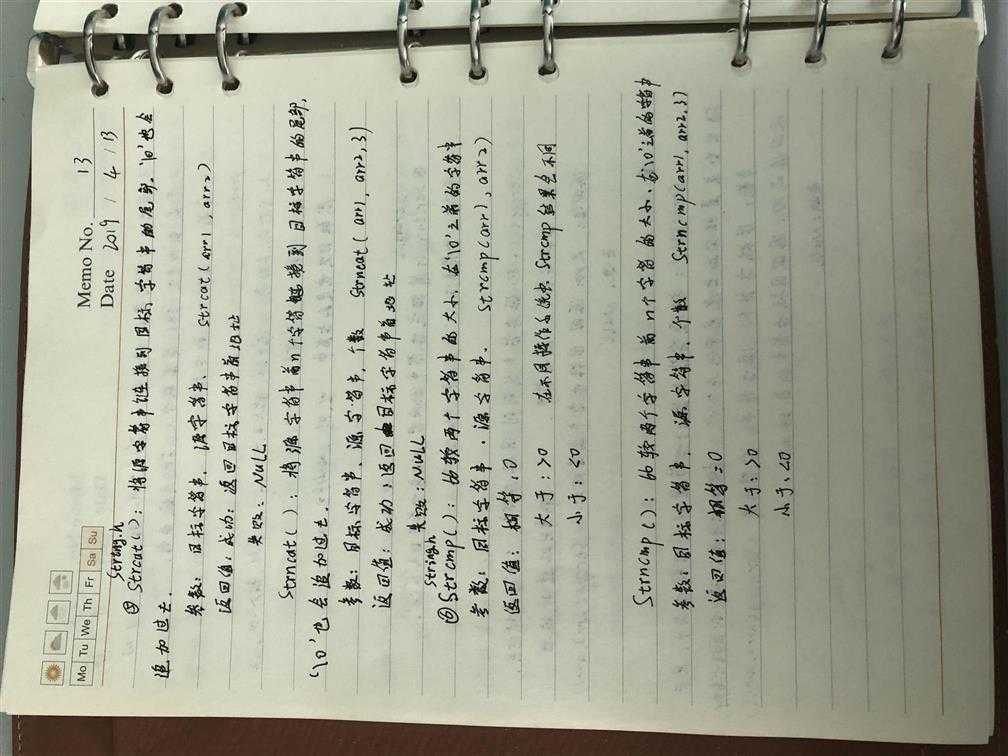 Memo No. 13
Mo Tu We Th Fr Sa Su
Date 2019 / 4 / 13
String.h
⑨ Strcat(): 将源字符串链接到目标,字符串的尾部.'\0'也会
追加过去.
参数: 目标字符串、源字符串、 Strcat(arr1, arr2)
返回值: 成功: 返回目标字符串首地址
失败: NULL
Strncat(): 将源字符串前n个字符链接到目标字符串的尾部,
'\0'也会追加过去.
参数: 目标字符串、源字符串,个数 Strncat(arr1, arr2, 3)
返回值: 成功: 返回目标字符串首地址
失败: NULL
String.h
⑩ Strcmp(): 比较两个字符串的大小,在'\0'之前的字符串
参数: 目标字符串、源字符串. Strcmp(arr1, arr2)
返回值: 相等: 0
大于: >0 在不同操作系统中 Strcmp结果会不同
小于: <0
Strncmp(): 比较两个字符串前n个字符的大小,在'\0'之前的字符串
参数: 目标字符串、源字符串、个数 Strncmp(arr1, arr2, 3)
返回值: 相等=0
大于: >0
小于: <0